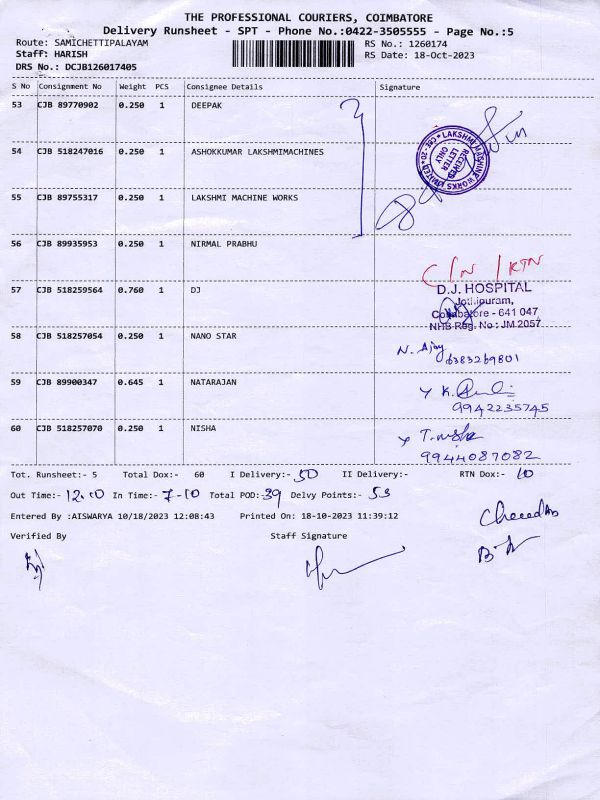 THE PROFESSIONAL COURIERS, COIMBATORE
Delivery Runsheet - SPT - Phone No.:0422-3505555 - Page No.:5
Route: SAMICHETTIPALAYAM RS No.: 1260174
Staff: HARISH RS Date: 18-Oct-2023
DRS No.: DCJB126017405
S No Consignment No Weight PCS Consignee Details Signature
53 CJB 89770902 0.250 1 DEEPAK
54 CJB 518247016 0.250 1 ASHOKKUMAR LAKSHMIMACHINES
LAKSHMI MACHINE WORKS LIMITED * CBE - 20 *
RECEIVED
LETTER
ONLY
55 CJB 89755317 0.250 1 LAKSHMI MACHINE WORKS
56 CJB 89935953 0.250 1 NIRMAL PRABHU
C/N / RTN
57 CJB 518259564 0.760 1 DJ
D.J. HOSPITAL
Jothipuram,
Coimbatore - 641 047
NHB Reg. No : JM 2057
58 CJB 518257054 0.250 1 NANO STAR
N. Ajay
6383269801
59 CJB 89900347 0.645 1 NATARAJAN
9942235745
60 CJB 518257070 0.250 1 NISHA
T. nisha
9944087082
Tot. Runsheet:- 5 Total Dox:- 60 I Delivery:- 50 II Delivery:- RTN Dox:- 10
Out Time:- 12.10 In Time:- 7-10 Total POD:- 39 Delvy Points:- 53
Entered By :AISWARYA 10/18/2023 12:08:43 Printed On: 18-10-2023 11:39:12
Verified By Staff Signature